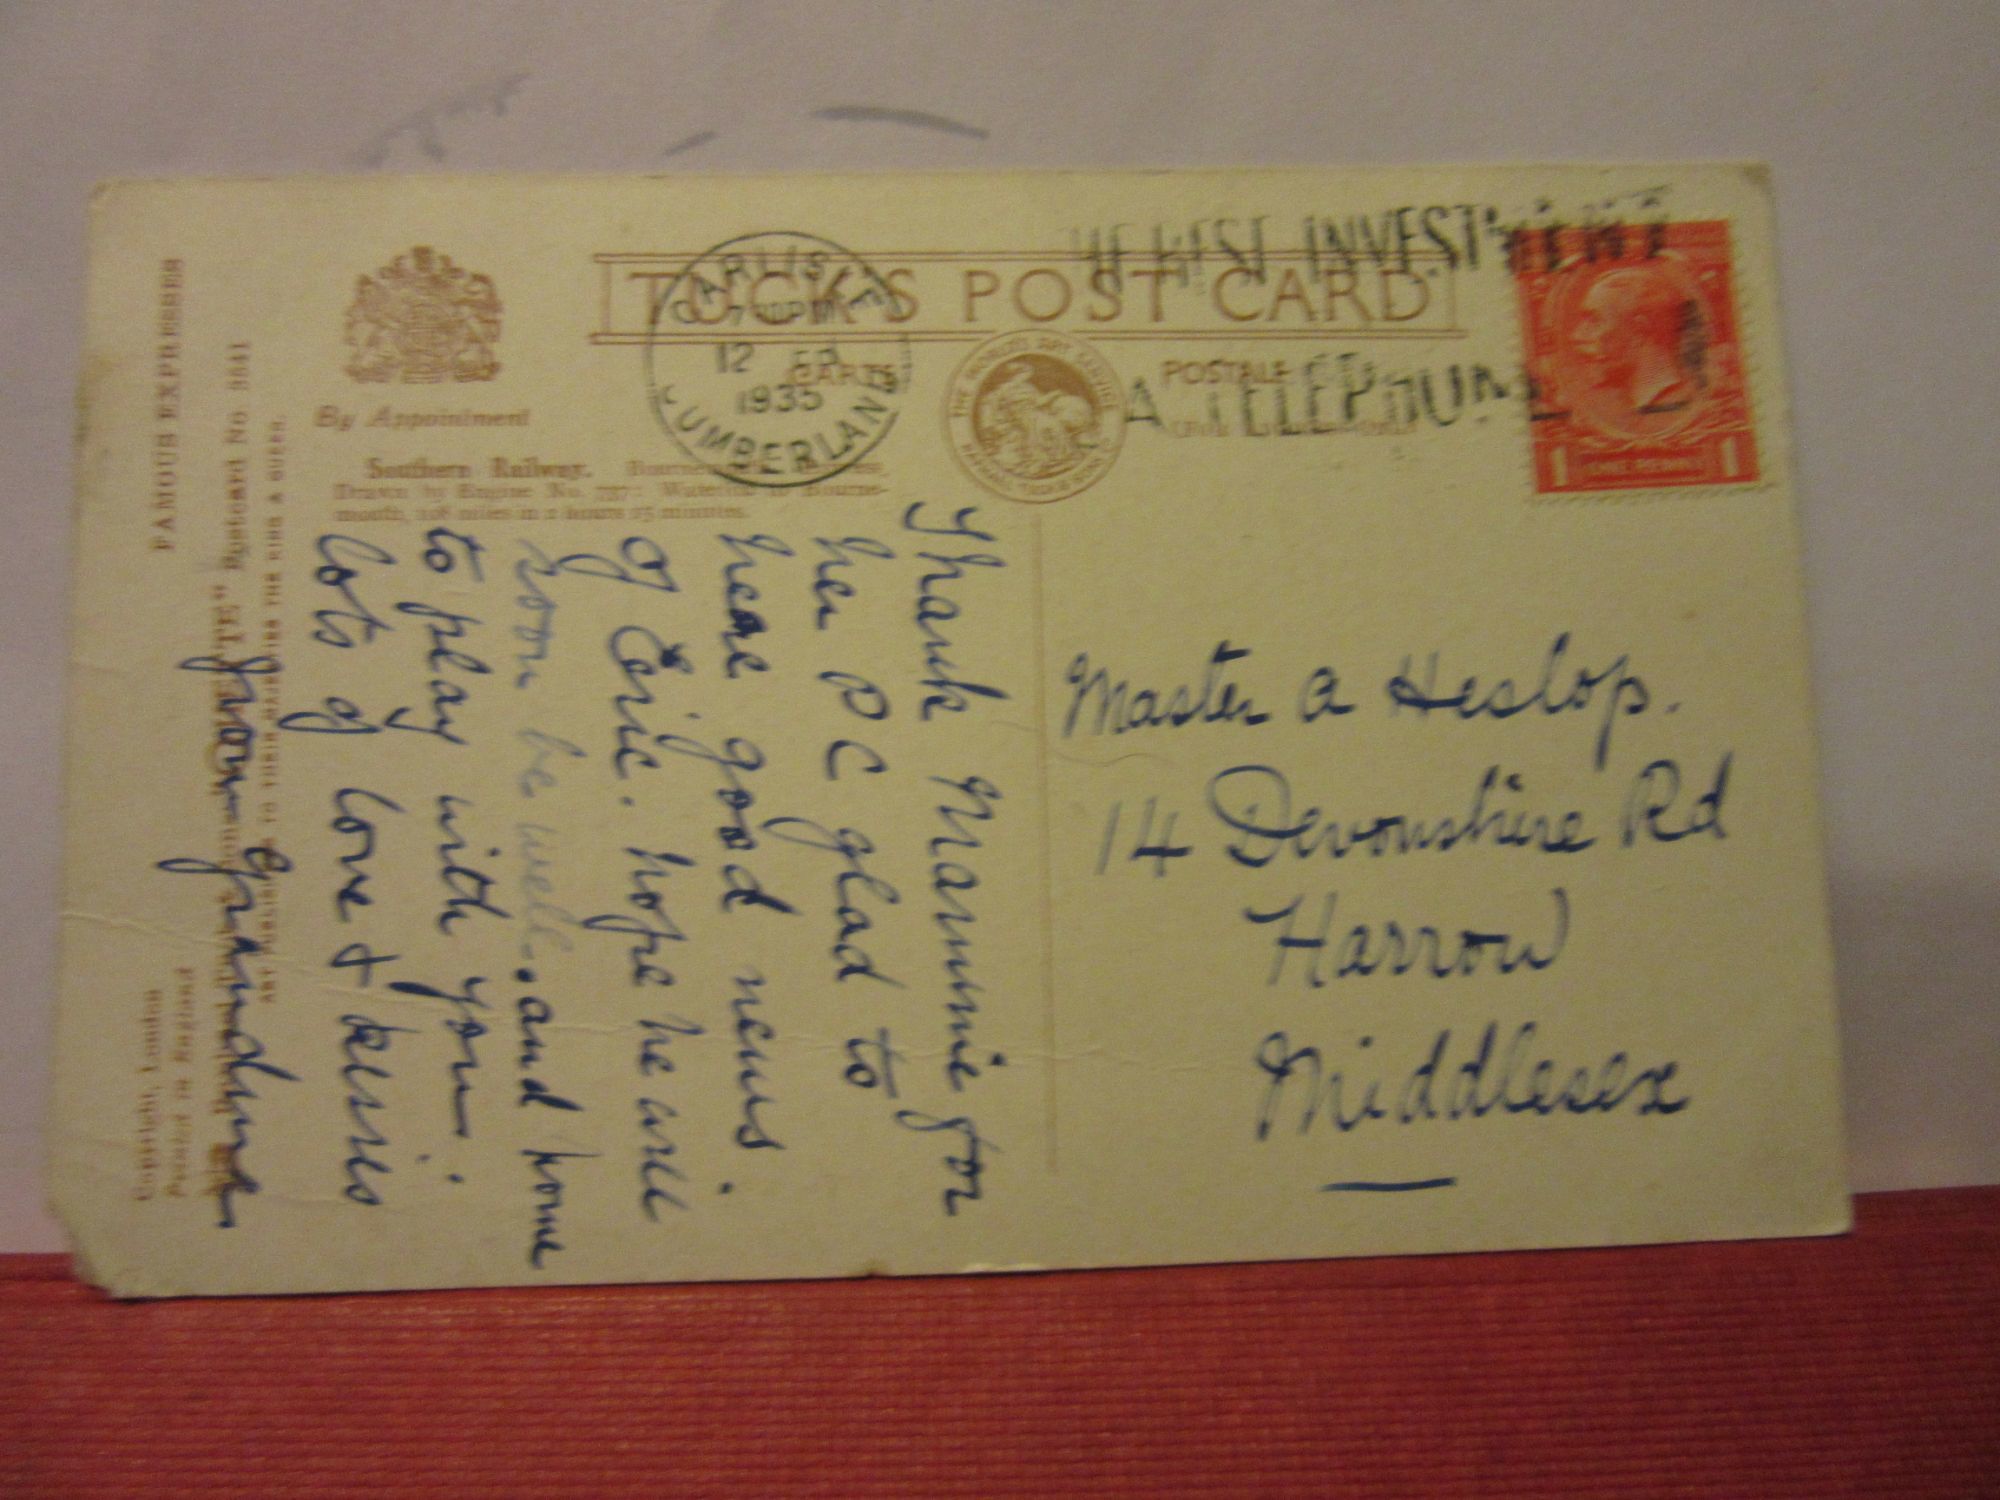 TUCK'S POST CARD
CARLISLE
12
1935
CUMBERLAND
BEST INVESTMENT
A TELEPHONE
CARTE
POSTALE
THE WORLD'S ART SERVICE
RAPHAEL TUCK & SONS
ONE PENNY
1 1
By Appointment
Southern Railway.
Drawn by Engine No. 737: Waterloo to Bourne-
mouth, 108 miles in 2 hours 25 minutes.
FAMOUS EXPRESSES
Postcard No 3641
Copyright, London
Printed in England
Thank Mammie for
her P C glad to
hear good news.
of Eric. hope he will
soon be well. and home
to play with you.
lots of love + kisses
from grandma
Master A Heslop.
14 Devonshire Rd
Harrow
Middlesex